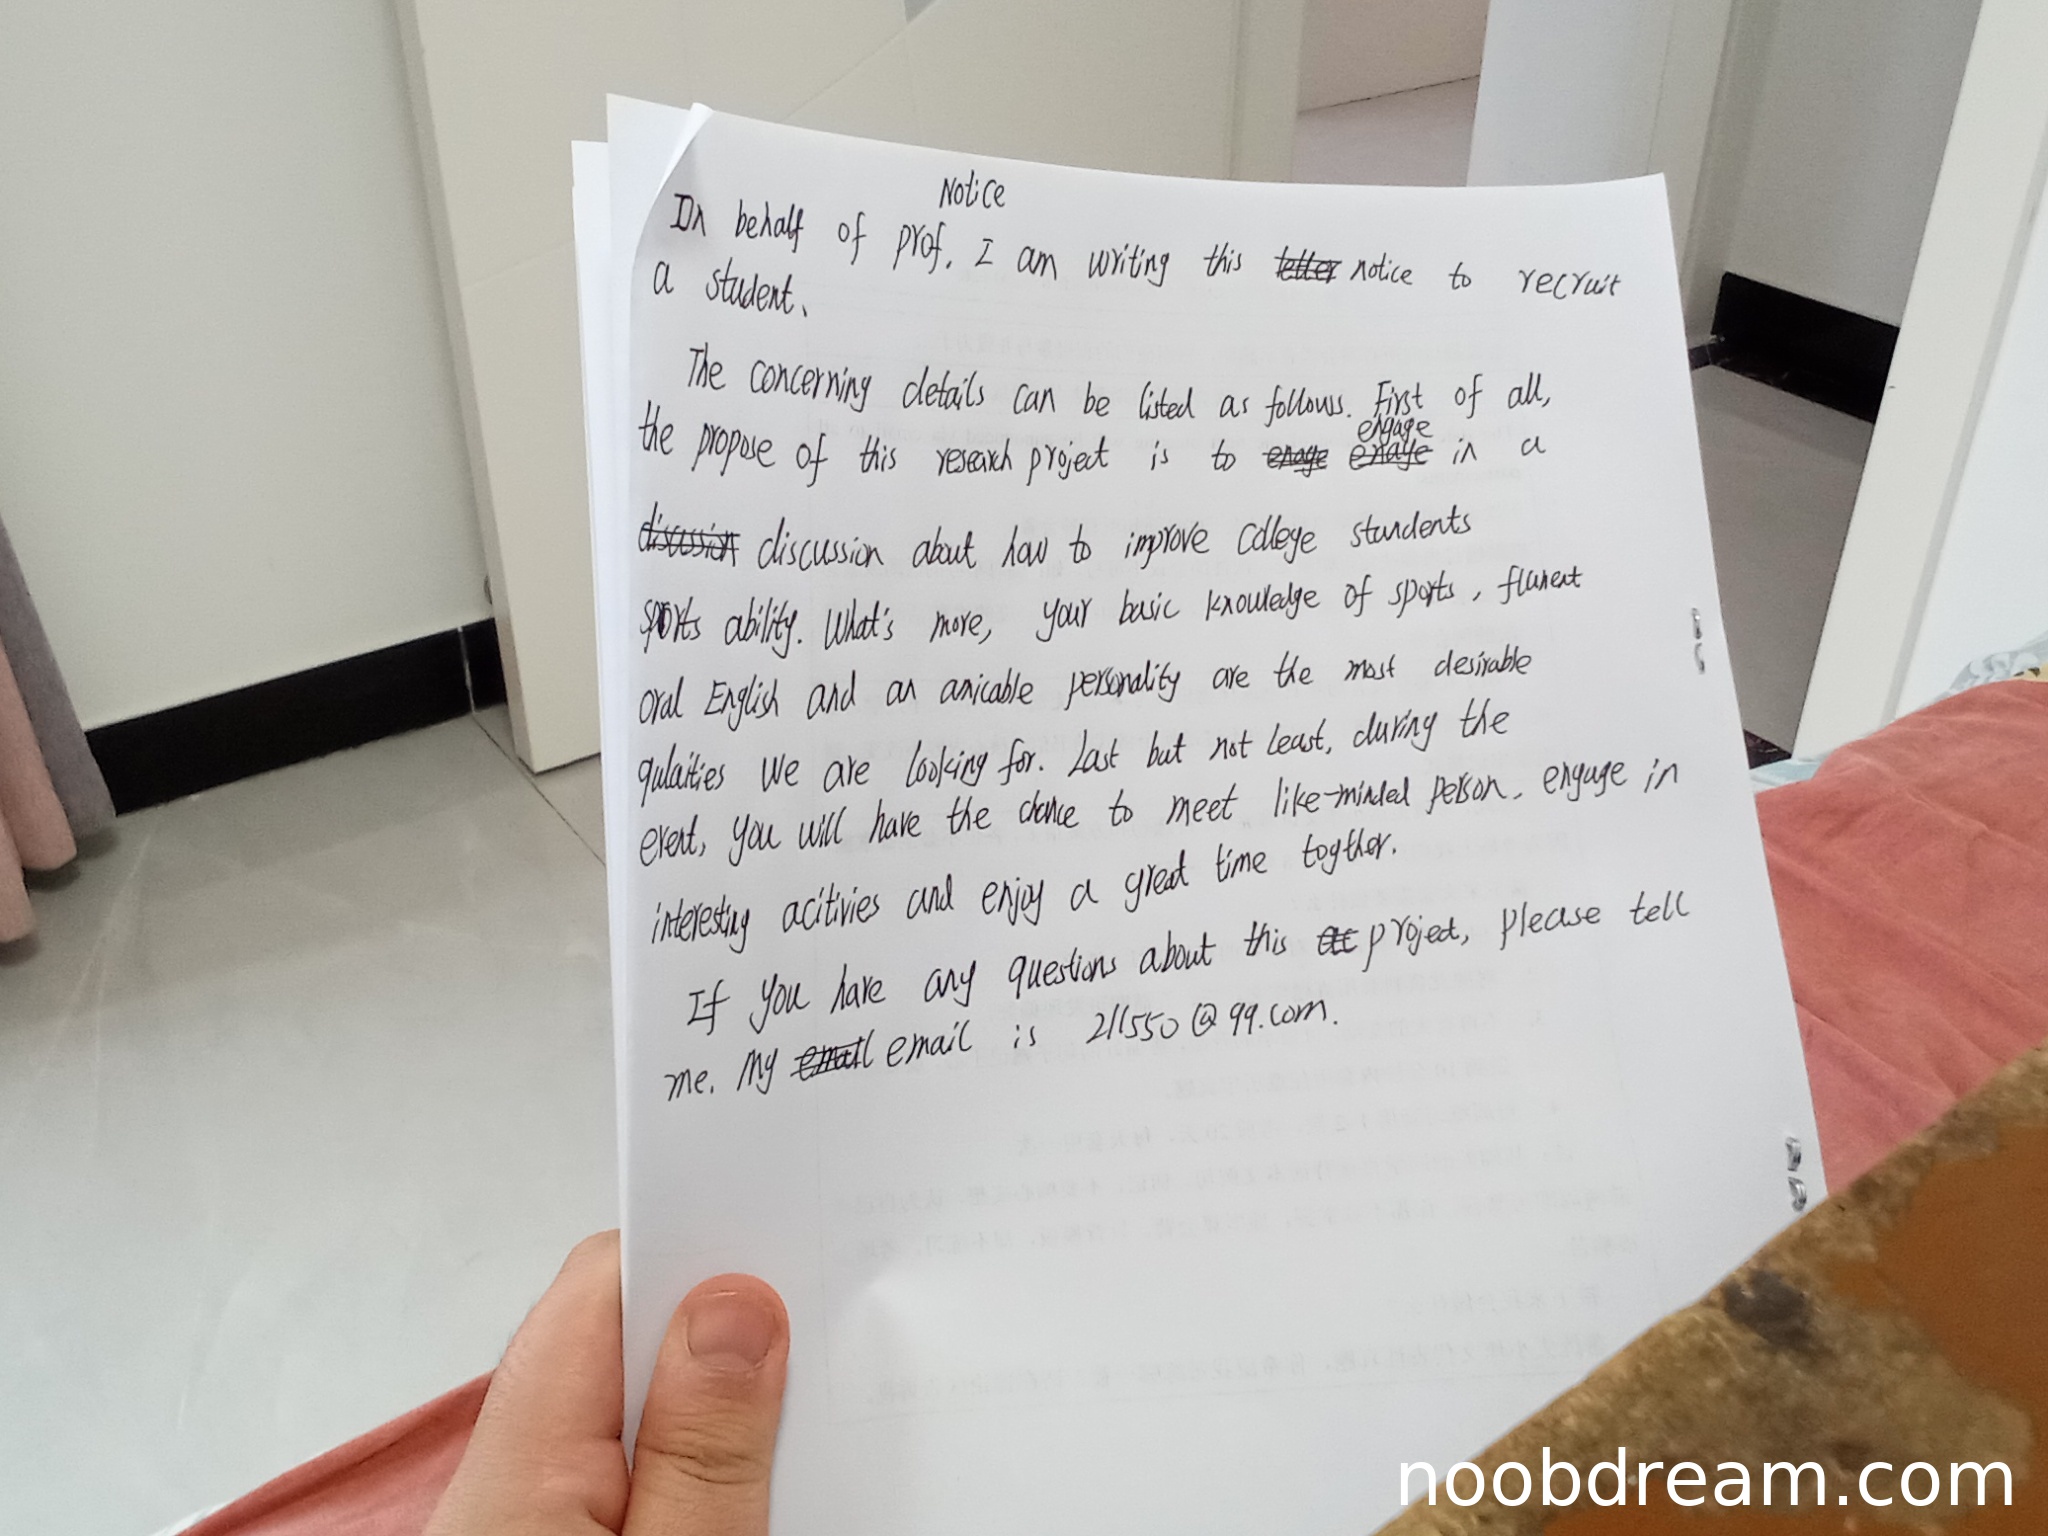 Notice
On behalf of prof. I am writing this letter notice to recruit
a student.
The concerning details can be listed as follows. First of all,
engage
the propose of this research project is to enage enage in a
discussion discussion about how to improve college stundents
sports ability. What's more, your basic knowledge of sports, flunent
oral English and an amicable personality are the most desirable
qulaities we are looking for. Last but not least, during the
event, you will have the chance to meet like-minded person, engage in
interesting acitivies and enjoy a great time togther.
If you have any questions about this project, please tell
me. My email email is 211550@qq.com.
noobdream.com